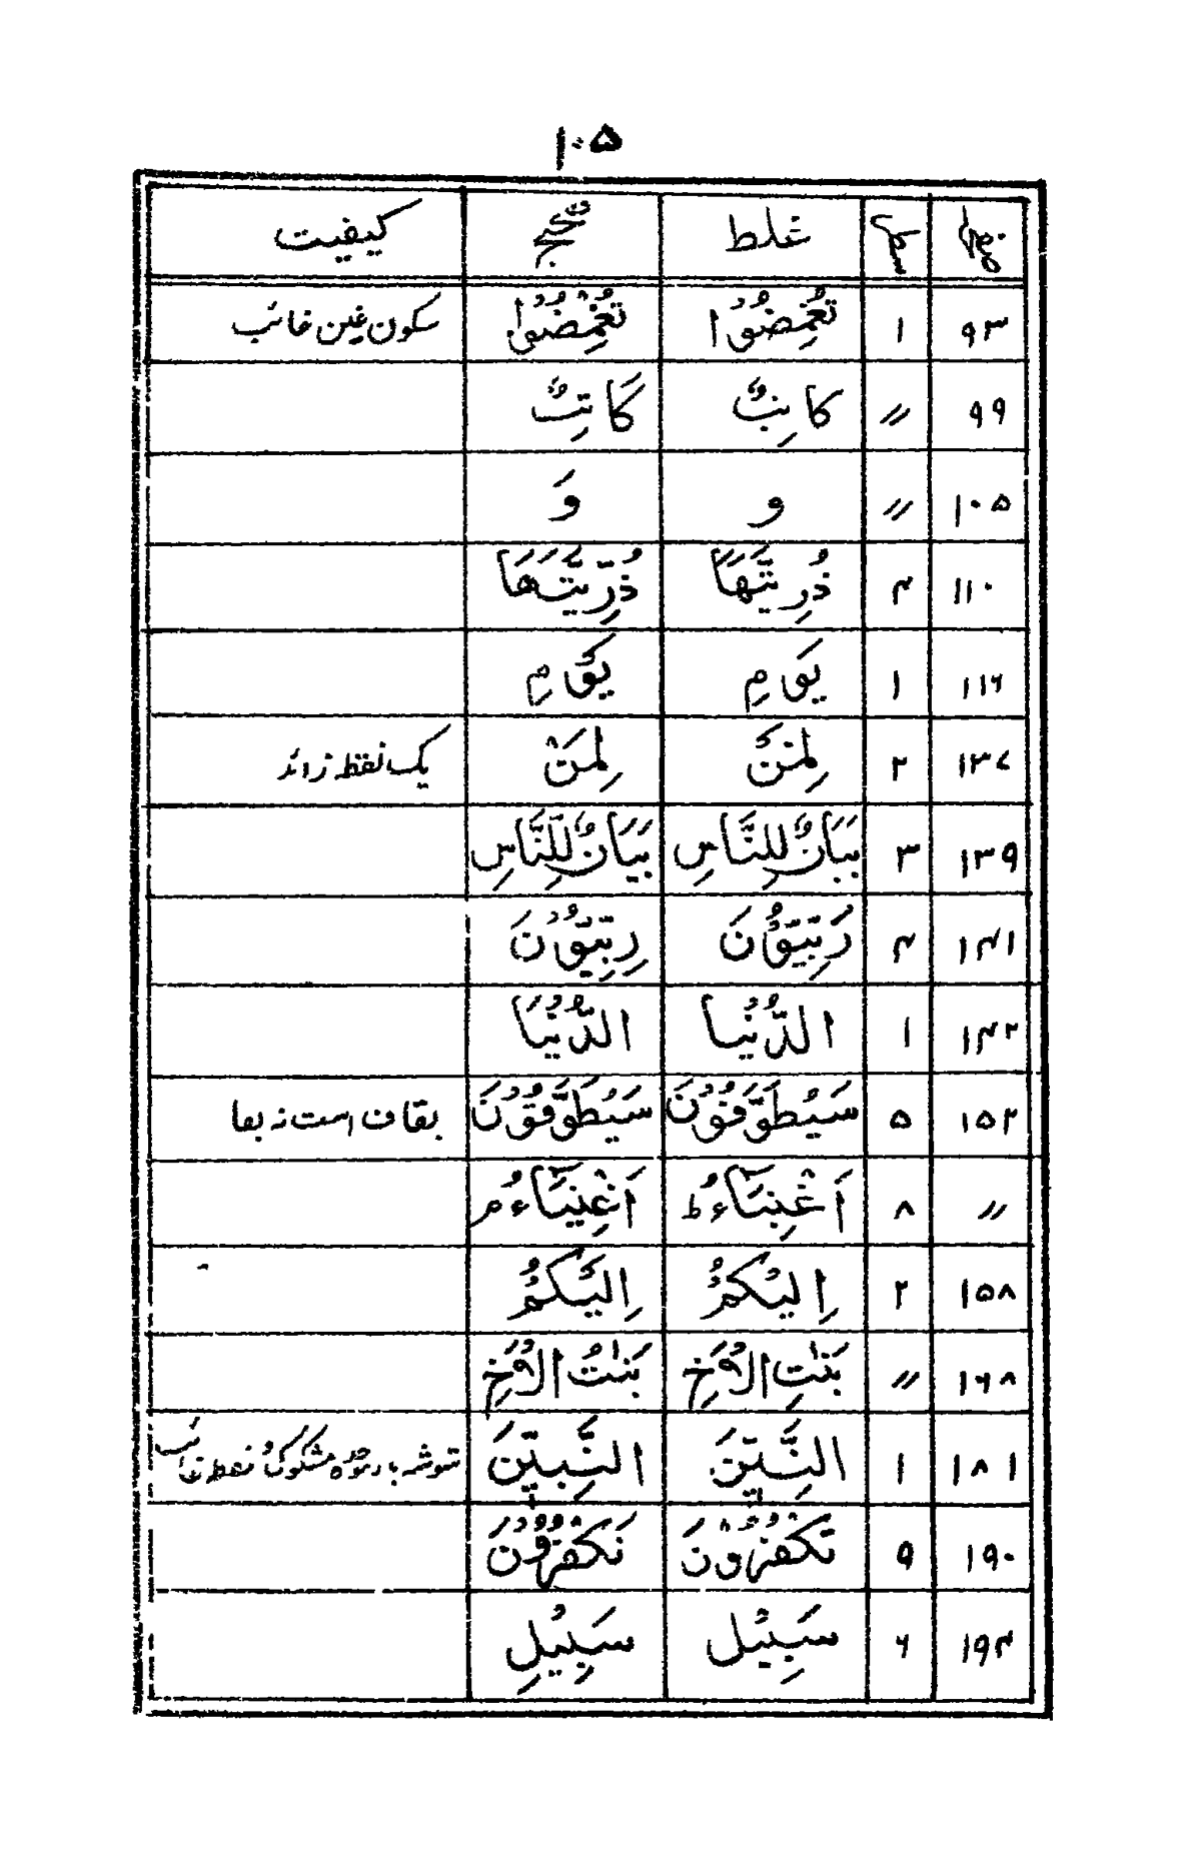 ۱۰۵
صفحہ سطر غلط صحیح کیفیت
۹۳ ۱ تُغمِضُوْا تُغْمِضُوْا سکون غین غائب
۹۹ // کاتِبٌ کَاتِبٌ
۱۰۵ // و وَ
۱۱۰ ۴ ذُرِیَّتَهَا ذُرِّیَّتَهَا
۱۱۶ ۱ یَومِ یَوْمِ
۱۳۷ ۲ لِمَنْ لِمَنْ یک نقطہ زائد
۱۳۹ ۳ بَیَانٌ لِلنَّاسِ بَیَانٌ لِّلنَّاسِ
۱۴۱ ۴ رَبِّیُّوْنَ رِبِّیُّوْنَ
۱۴۲ ۱ الدُّنْیا الدُّنْیَا
۱۵۲ ۵ سَیُطَوَّفُوْنَ سَیُطَوَّقُوْنَ بقاف است نہ بفا
// ۸ اَغْنِیَآءُ ط اَغْنِیَآءُ م
۱۵۸ ۲ اِلیْکُمْ اِلَیْکُمْ
۱۶۸ // بَنٰتِ الْاَخِ بَنٰتُ الْاَخِ
۱۸۱ ۱ النَّبِیّٖنَ النَّبِیّٖنَ شوشہ باء مشکوک و نقطہ غائب
۱۹۰ ۹ تَکْفُرُوْنَ تَکْفُرُوْنَ
۱۹۴ ۶ سَبِیْل سَبِیْلِ